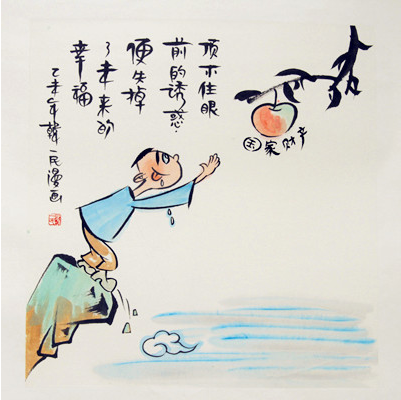 顶不住眼
前的诱惑.
便失掉
了未来的
幸福
乙未年韓一民漫画
国家财产